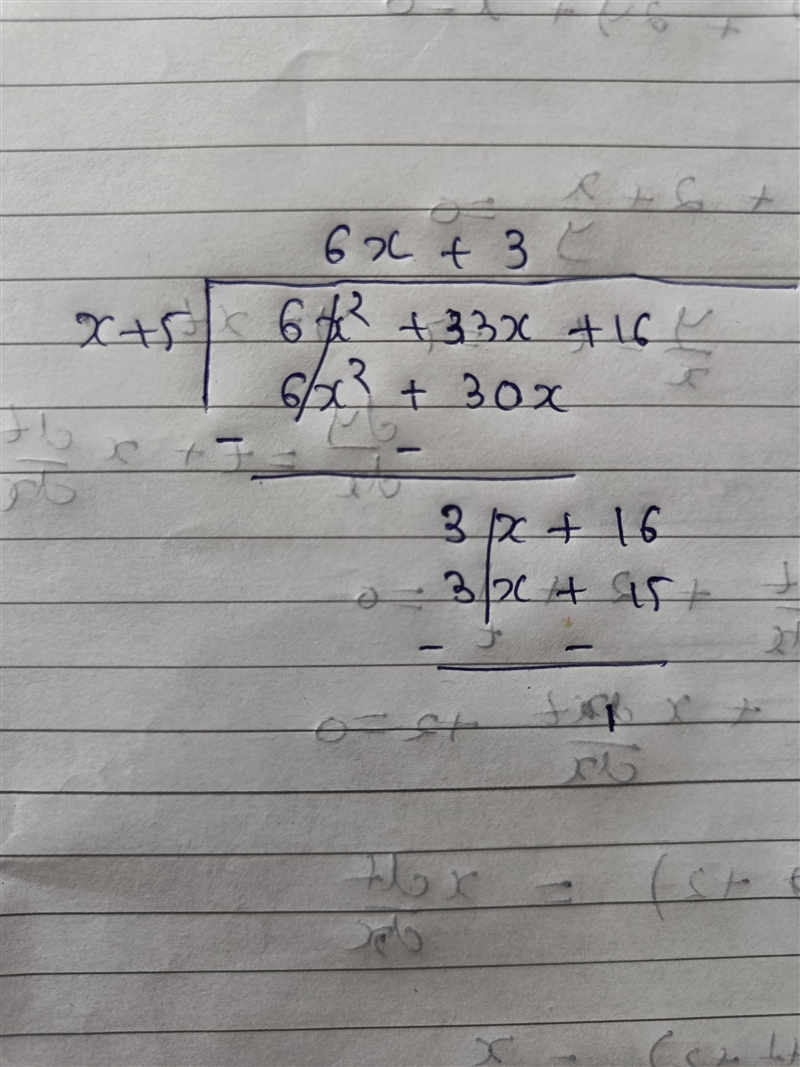 6x + 3
x+5 6x² + 33x + 16
6x² + 30x
- -
3x + 16
3x + 15
- -
1